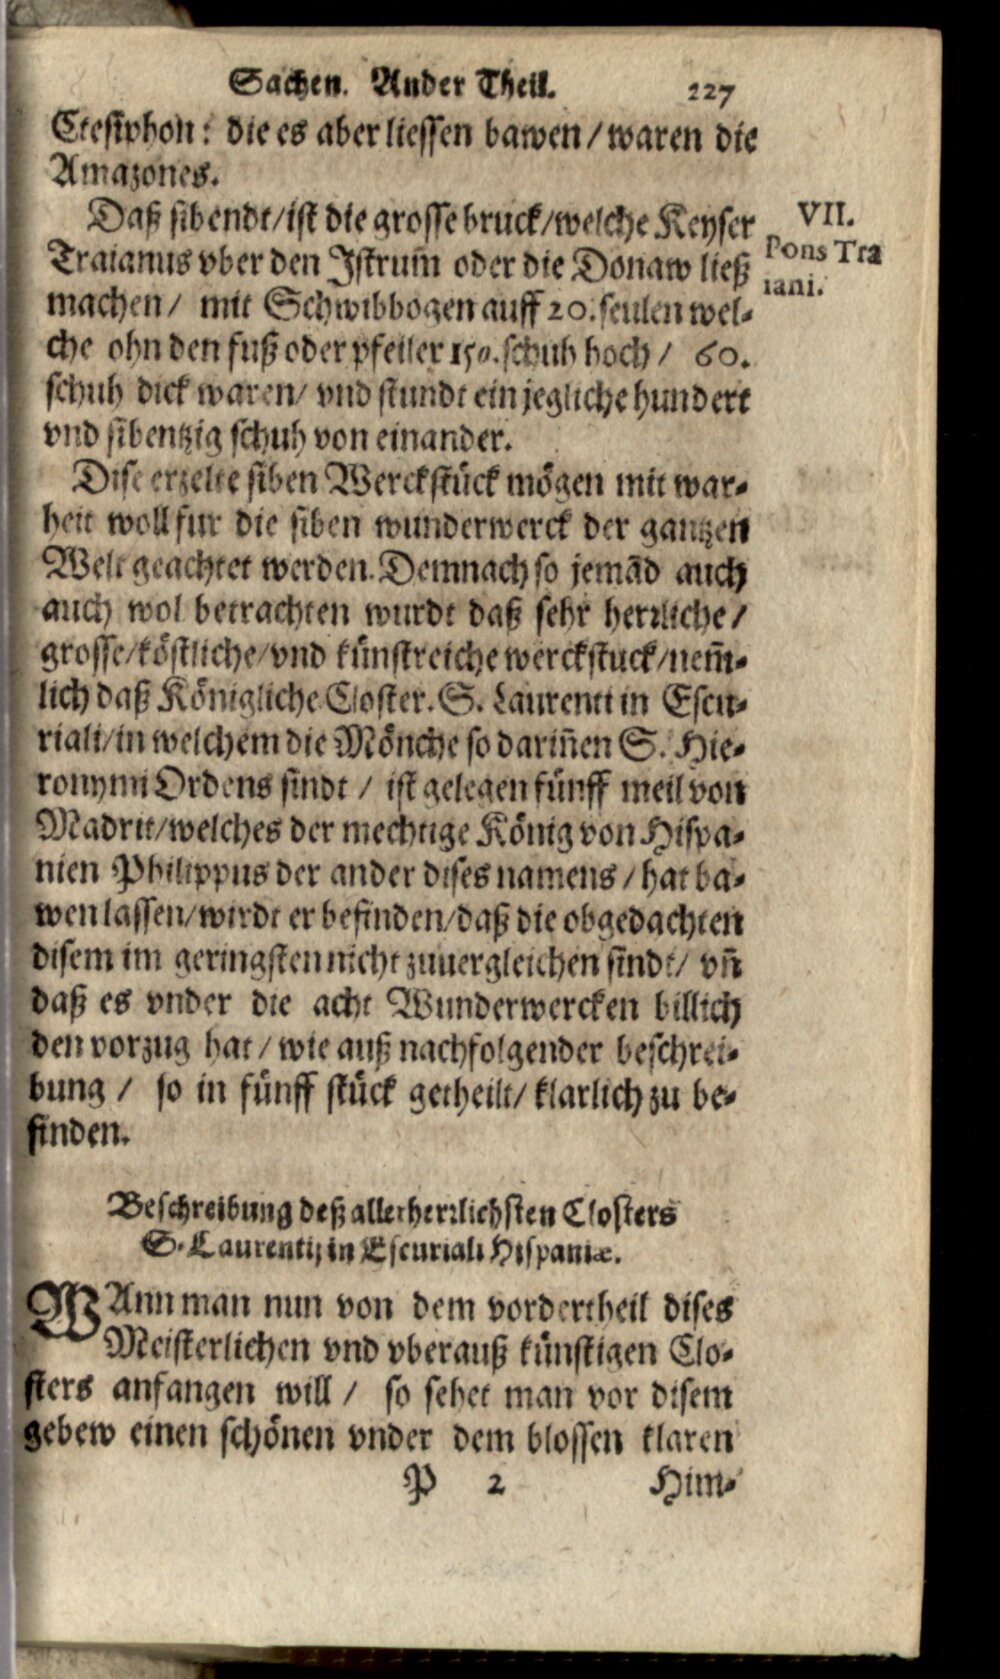 Sachen. Ander Theil. 227
Ctesiphon: die es aber liessen bawen / waren die
Amazones.
Daß sibendt / ist die grosse bruck / welche Keyser
Traianus vber den Istrum̃ oder die Donaw ließ
machen / mit Schwibbogen auff 20. seulen wel-
che ohn den fuß oder pfeiler 150. schuh hoch / 60.
schuh dick waren / vnd stundt ein jegliche hundert
vnd sibentzig schuh von einander.
VII.
Pons Tra
iani.
Dise erzelte siben Werckstück mögen mit war-
heit woll fur die siben wunderwerck der gantzen
Welt geachtet werden. Demnach so jemãd auch
auch wol betrachten wurdt daß sehr herrliche /
grosse / köstliche / vnd künstreiche werckstuck / nem̃-
lich daß Königliche Closter. S. Laurenti in Escu-
riali / in welchem die Mönche so dariñen S. Hie-
ronymi Ordens sindt / ist gelegen fünff meil von
Madrit / welches der mechtige König von Hispa-
nien Philippus der ander dises namens / hat ba-
wen lassen / wirdt er befinden / daß die obgedachten
disem im geringsten nicht zuuergleichen sindt / vñ
daß es vnder die acht Wunderwercken billich
den vorzug hat / wie auß nachfolgender beschrei-
bung / so in fünff stück getheilt / klarlich zu be-
finden.
Beschreibung deß allerherrlichsten Closters
S. Laurentij in Escuriali Hispaniæ.
WAnn man nun von dem vordertheil dises
Meisterlichen vnd vberauß künstigen Clo-
sters anfangen will / so sehet man vor disem
gebew einen schönen vnder dem blossen klaren
P 2 Him-